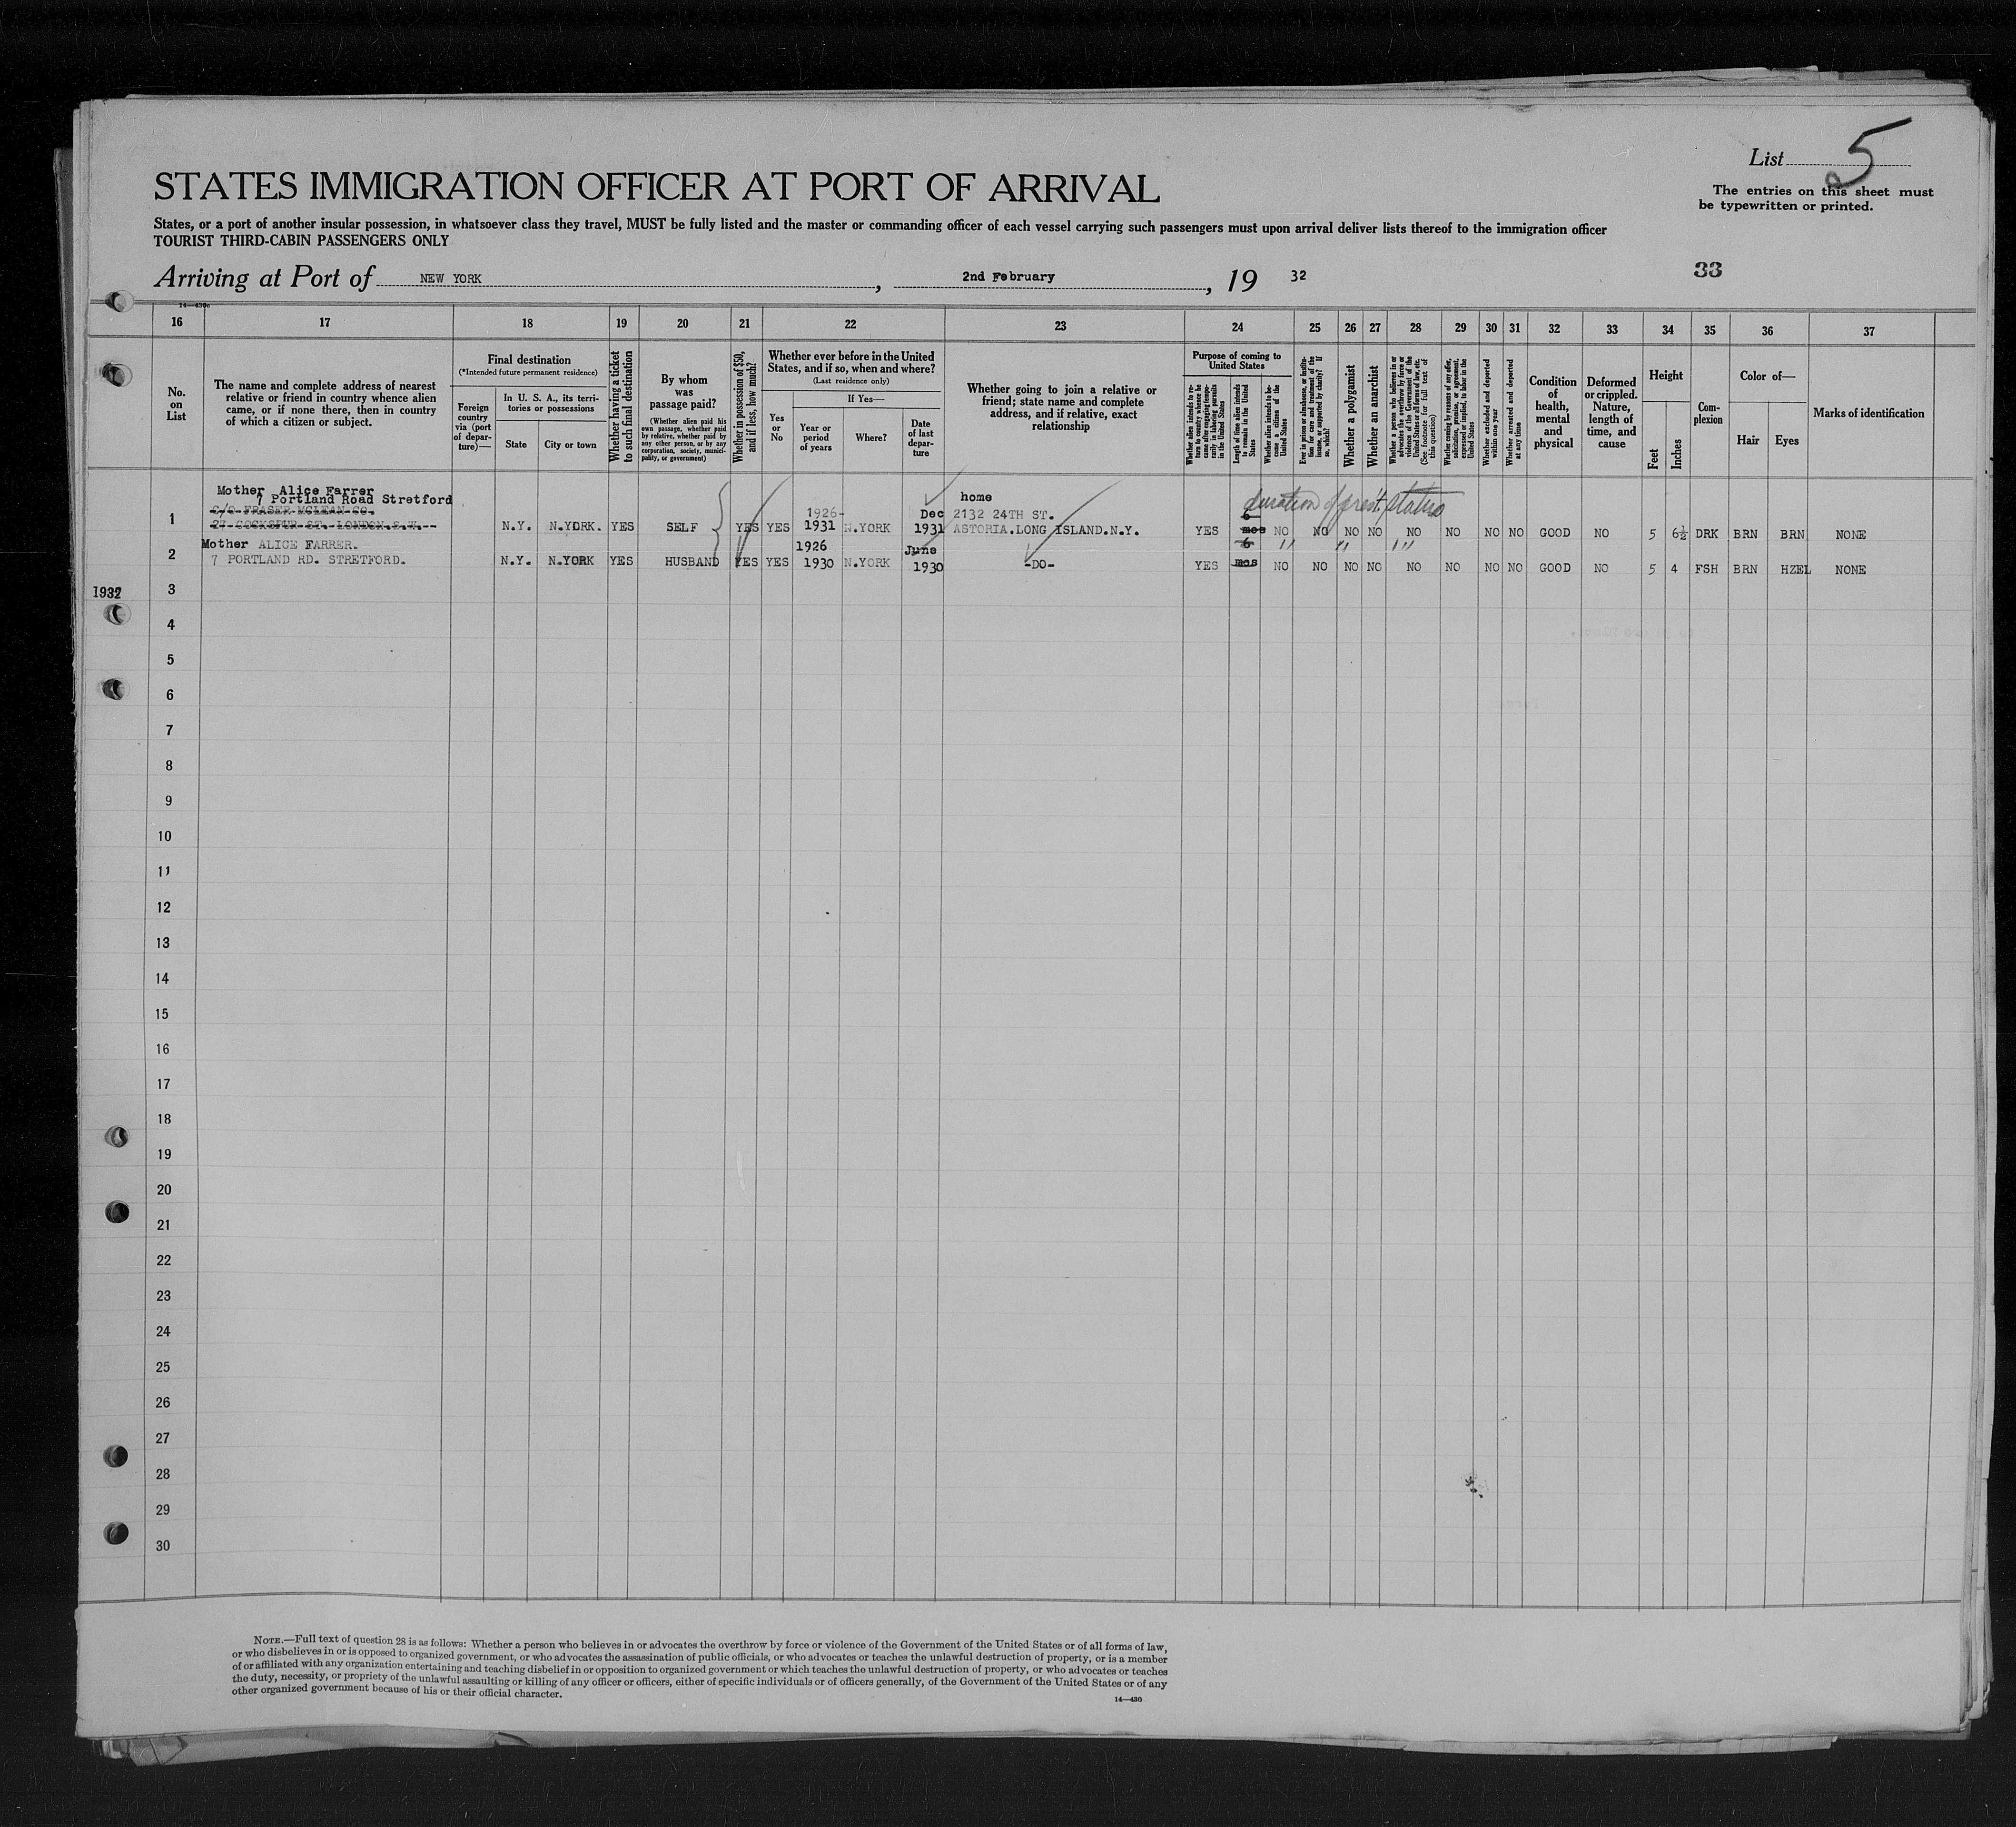 List 5
STATES IMMIGRATION OFFICER AT PORT OF ARRIVAL
The entries on this sheet must
be typewritten or printed.
States, or a port of another insular possession, in whatsoever class they travel, MUST be fully listed and the master or commanding officer of each vessel carrying such passengers must upon arrival deliver lists thereof to the immigration officer
TOURIST THIRD-CABIN PASSENGERS ONLY
Arriving at Port of NEW YORK, 2nd February, 19 32
33
16 17 18 19 20 21 22 23 24 25 26 27 28 29 30 31 32 33 34 35 36 37
No. on List
The name and complete address of nearest
relative or friend in country whence alien
came, or if none there, then in country
of which a citizen or subject.
Final destination
(*Intended future permanent residence)
Foreign
country
via (port
of depar-
ture)—
In U. S. A., its terri-
tories or possessions
State
City or town
Whether having a ticket
to such final destination
By whom
was
passage paid?
(Whether alien paid his
own passage, whether paid
by relative, whether paid by
any other person, or by any
corporation, society, munici-
pality, or government)
Whether in possession of $50,
and if less, how much?
Whether ever before in the United
States, and if so, when and where?
(Last residence only)
Yes
or
No
If Yes—
Year or
period
of years
Where?
Date
of last
depar-
ture
Whether going to join a relative or
friend; state name and complete
address, and if relative, exact
relationship
Purpose of coming to
United States
Whether alien intends to re-
turn to country whence he
came after engaging tempo-
rarily in laboring pursuits
in the United States
Length of time alien intends
to remain in the United
States
Whether alien intends to be-
come a citizen of the
United States
Ever in prison or almshouse, or institu-
tion for care and treatment of the
insane, or supported by charity? If
so, which?
Whether a polygamist
Whether an anarchist
Whether a person who believes in or
advocates the overthrow by force or
violence of the Government of the
United States or all forms of law, etc.
(See footnote for full text of
this question)
Whether coming by reasons of any offer,
solicitation, promise, or agreement,
expressed or implied, to labor in the
United States
Whether excluded and deported
within one year
Whether arrested and deported
at any time
Condition
of
health,
mental
and
physical
Deformed
or crippled.
Nature,
length of
time, and
cause
Height
Feet
Inches
Com-
plexion
Color of—
Hair
Eyes
Marks of identification
Mother Alice Farrer
7 Portland Road Stretford
C/O FRASER MCLEAN CO.
27 COCKSPUR ST. LONDON.S.W.
1 N.Y. N.YORK. YES SELF YES YES 1926-1931 N.YORK Dec 1931 home 2132 24TH ST. ASTORIA.LONG ISLAND.N.Y. YES 6 mos NO NO NO NO NO NO NO NO GOOD NO 5 6½ DRK BRN BRN NONE
duration of pres't. status
Mother ALICE FARRER.
2 7 PORTLAND RD. STRETFORD. N.Y. N.YORK YES HUSBAND YES YES 1926 1930 N.YORK June 1930 -DO- YES 6 mos NO NO NO NO NO NO NO NO GOOD NO 5 4 FSH BRN HZEL NONE
" " "
1932
3
4
5
6
7
8
9
10
11
12
13
14
15
16
17
18
19
20
21
22
23
24
25
26
27
28
29
30
NOTE.—Full text of question 28 is as follows: Whether a person who believes in or advocates the overthrow by force or violence of the Government of the United States or of all forms of law,
or who disbelieves in or is opposed to organized government, or who advocates the assassination of public officials, or who advocates or teaches the unlawful destruction of property, or is a member
of or affiliated with any organization entertaining and teaching disbelief in or opposition to organized government or which teaches the unlawful destruction of property, or who advocates or teaches
the duty, necessity, or propriety of the unlawful assaulting or killing of any officer or officers, either of specific individuals or of officers generally, of the Government of the United States or of any
other organized government because of his or their official character.
14—430